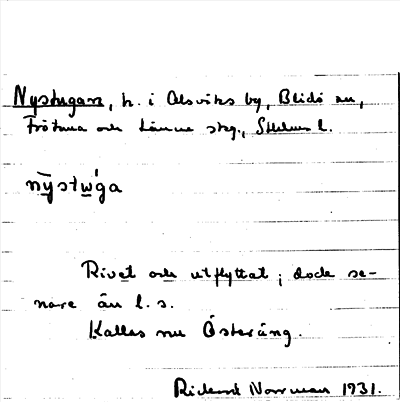 Nystugan, h. i Alsviks by, Blidö sn,
Frötuna och Länna skg., Sthlms l.
nystuga
Rivet och utflyttat; dock se-
nare än l. s.
Kallas nu Österäng.
Rickard Norrman 1931.